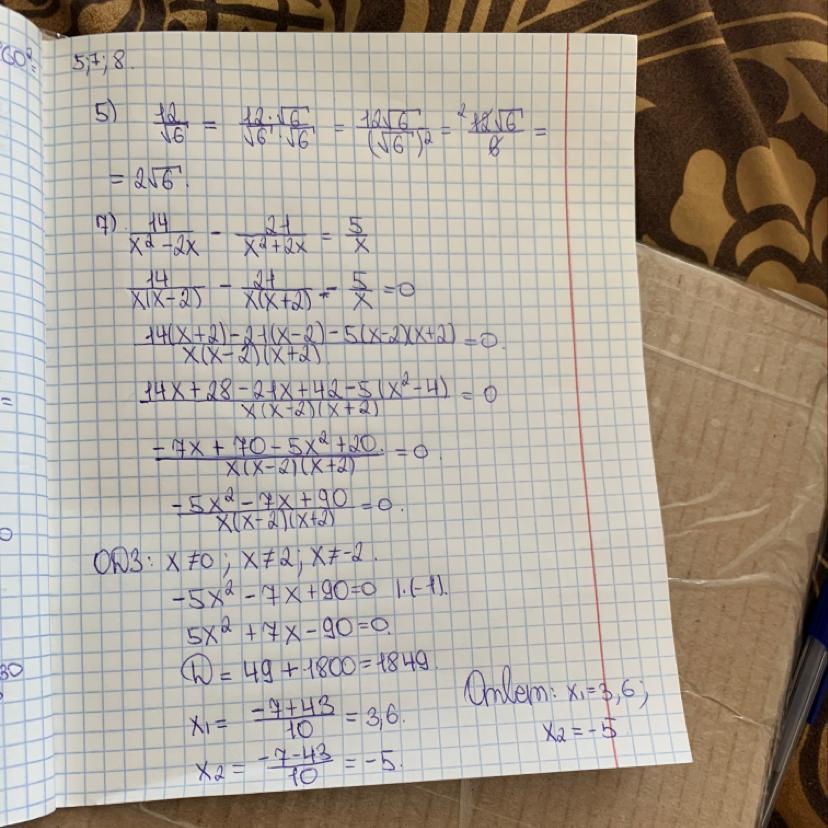 60²=
5;7;8.
5) 12/√6 = 12·√6/√6·√6 = 12√6/(√6)² = ²12√6/6 =
= 2√6.
7) 14/x²-2x - 21/x²+2x = 5/x
14/x(x-2) - 21/x(x+2) - 5/x =0
14(x+2)-21(x-2)-5(x-2)(x+2)/x(x-2)(x+2) =0.
14x+28-21x+42-5(x²-4)/x(x-2)(x+2) =0
-7x+70-5x²+20./x(x-2)(x+2) =0.
-5x²-7x+90/x(x-2)(x+2) =0.
ОДЗ: x≠0; x≠2; x≠-2.
-5x²-7x+90=0 |·(-1).
5x²+7x-90=0.
D=49+1800=1849.
x₁= -7+43/10 =3,6.
x₂= -7-43/10 =-5.
Ответ: x₁=3,6;
x₂=-5